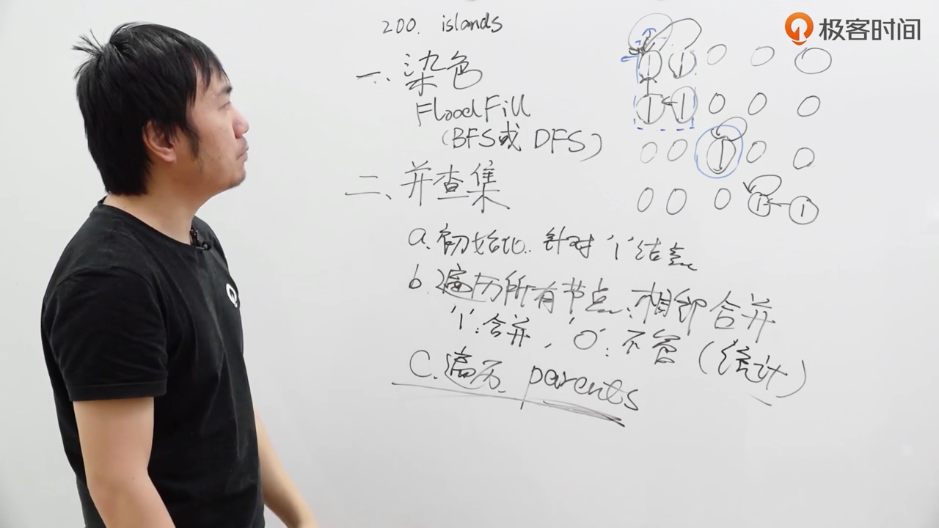 极客时间
200. islands
一、染色
FloodFill
(BFS或 DFS)
二、并查集
a. 初始化. 针对'1'结点
b. 遍历所有节点、相邻合并
'1':合并, '0':不管 (统计)
C. 遍历. parents
1 1 0 0 0
1 1 0 0 0
0 0 1 0 0
0 0 0 1 1